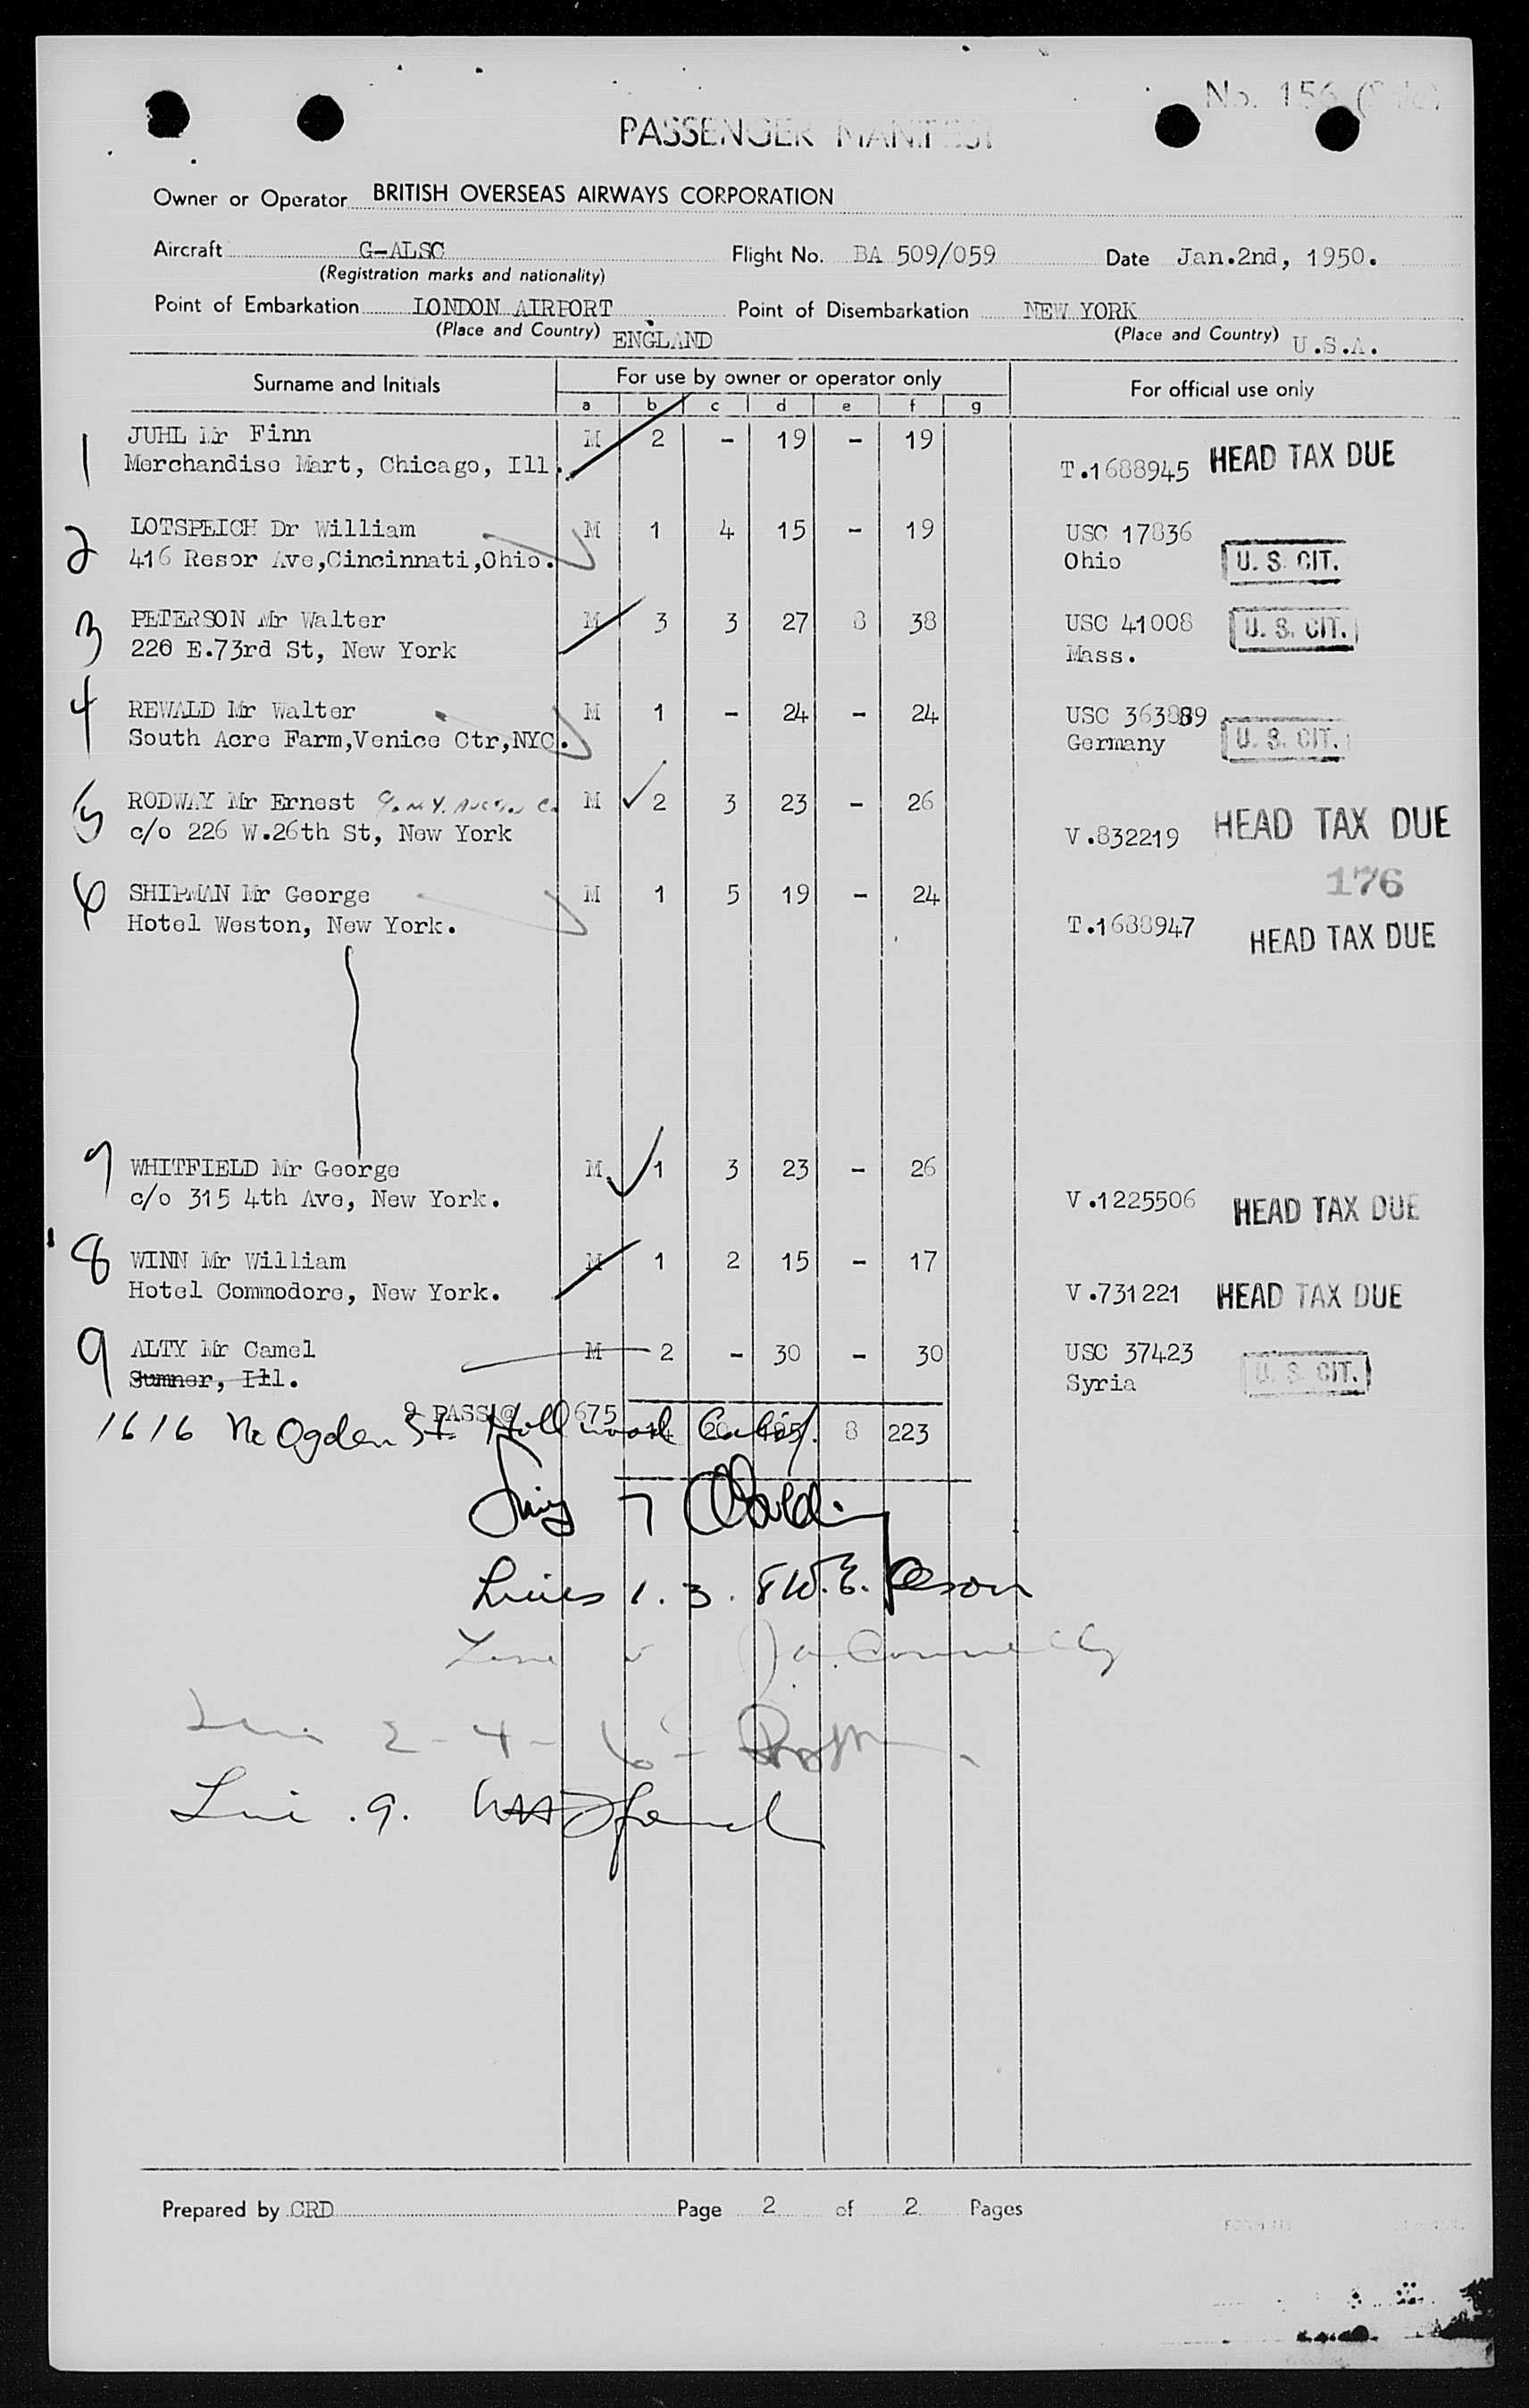 No. 156
PASSENGER MANIFEST
Owner or Operator BRITISH OVERSEAS AIRWAYS CORPORATION
Aircraft G-ALSC Flight No. BA 509/059 Date Jan.2nd, 1950.
(Registration marks and nationality)
Point of Embarkation LONDON AIRPORT Point of Disembarkation NEW YORK
(Place and Country) ENGLAND (Place and Country) U.S.A.
Surname and Initials For use by owner or operator only For official use only
a b c d e f g
1 JUHL Mr Finn M 2 - 19 - 19
Merchandise Mart, Chicago, Ill. T.1688945 HEAD TAX DUE
2 LOTSPEICH Dr William M 1 4 15 - 19 USC 17836
416 Resor Ave,Cincinnati,Ohio. Ohio U. S. CIT.
3 PETERSON Mr Walter M 3 3 27 8 38 USC 41008 U. S. CIT.
220 E.73rd St, New York Mass.
4 REWALD Mr Walter M 1 - 24 - 24 USC 363889
South Acre Farm,Venice Ctr,NYC. Germany U. S. CIT.
5 RODWAY Mr Ernest M 2 3 23 - 26
c/o 226 W.26th St, New York V.832219 HEAD TAX DUE
176
6 SHIPMAN Mr George M 1 5 19 - 24
Hotel Weston, New York. T.1688947 HEAD TAX DUE
7 WHITFIELD Mr George M 1 3 23 - 26
c/o 315 4th Ave, New York. V.1225506 HEAD TAX DUE
8 WINN Mr William M 1 2 15 - 17
Hotel Commodore, New York. V.731221 HEAD TAX DUE
9 ALTY Mr Camel M 2 - 30 - 30 USC 37423
Sumner, Ill. Syria U. S. CIT.
9 PASS @ 675 14 20 195 8 223
1616 No Ogden St Hollwood Calif.
7
Lines 1. 3. 8 W.E.
Line J.A. Connelly
Line 2-4-6-
Line .9.
Prepared by CRD Page 2 of 2 Pages